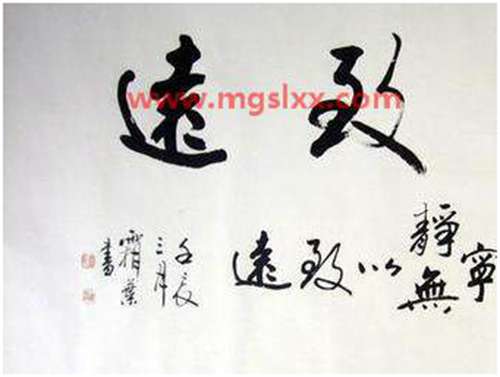 致遠
www.mgslxx.com
寧
靜無
以致遠
壬辰
三月
霜葉
書